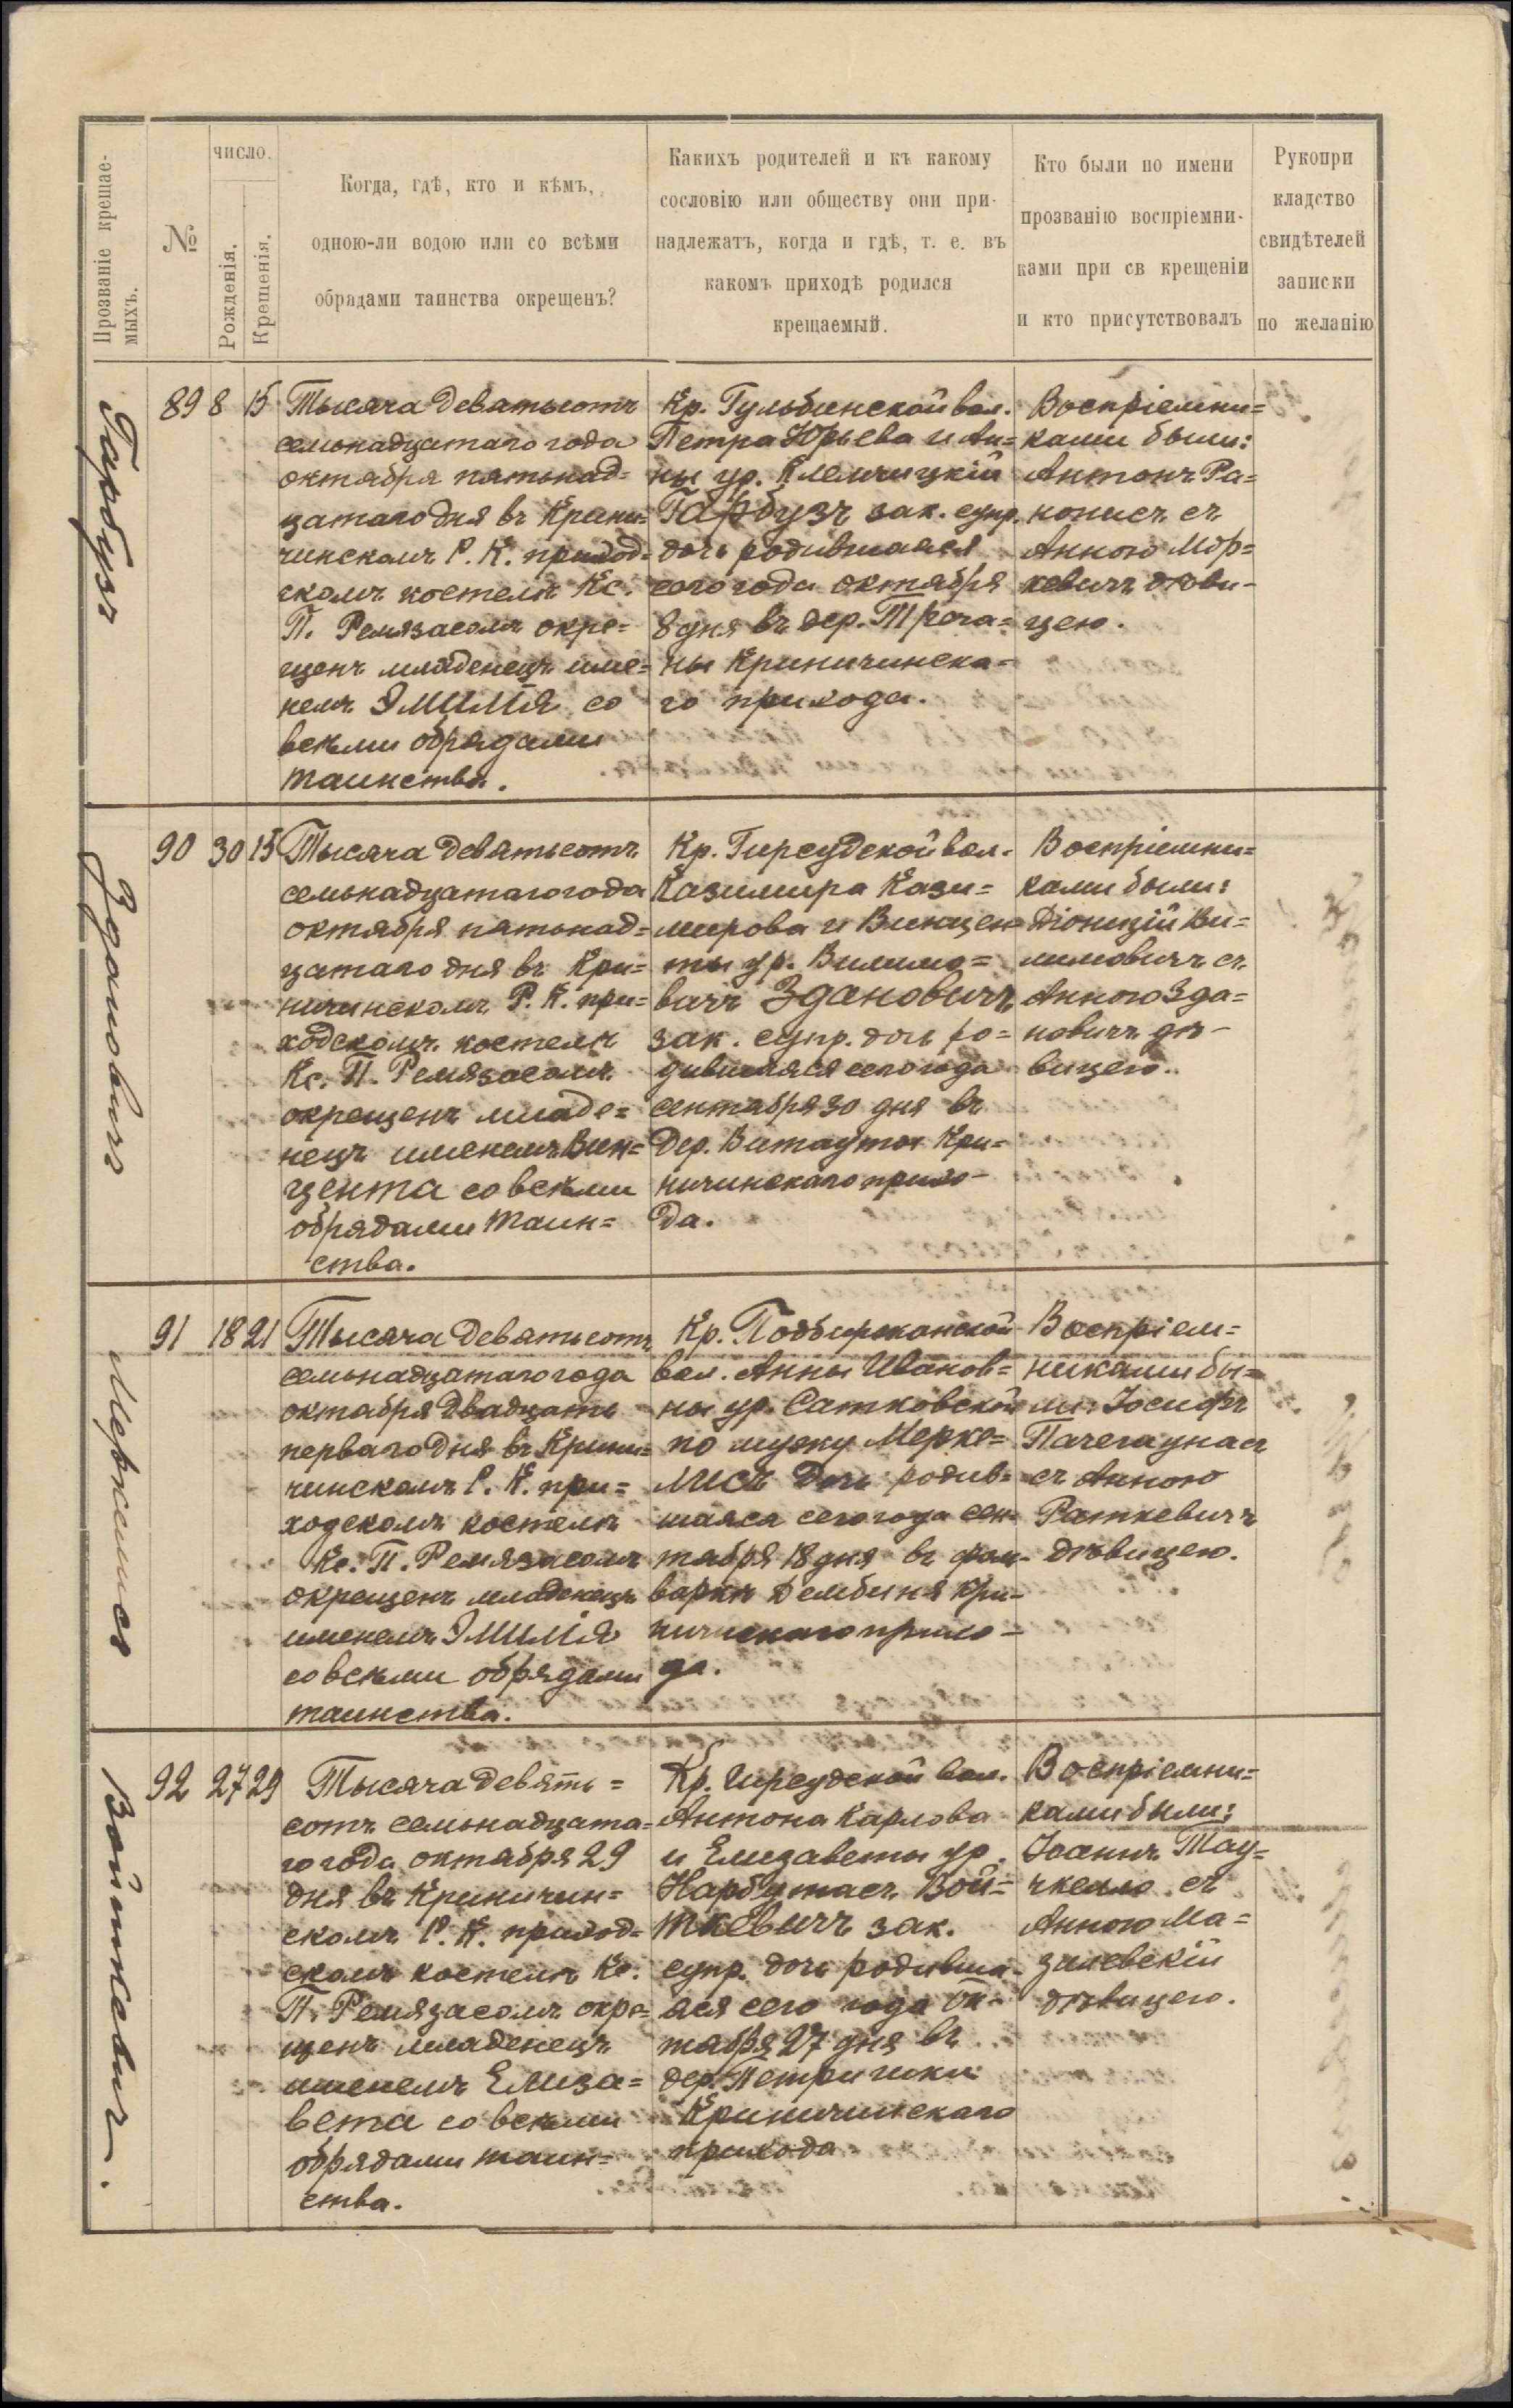 Прозваніе крещае-
мыхъ.
№
число.
Рожденія.
Крещенія.
Когда, гдѣ, кто и кѣмъ,
одною-ли водою или со всѣми
обрядами таинства окрещенъ?
Каких​ъ родителей и къ какому
сословію или обществу они при-
надлежатъ, когда и гдѣ, т. е. въ
какомъ приходѣ родился
крещаемый.
Кто были по имени
прозванію воспріемни-
ками при св крещеніи
и кто присутствовалъ
Рукопри
кладство
свидѣтелей
записки
по желанію
Гарбузъ
89 8 15
Тысяча девятьсотъ
семьнадцатаго года
октября пятьнад=
цатаго дня въ Крини=
чинскомъ Р. К. приход=
скомъ костелѣ Кс.
П. Ремязасомъ окре=
щенъ младенецъ име=
немъ Эмилія со
всѣми обрядами
таинства.
Кр. Гульбинской вол.
Петра Юрьева и Ан=
ны ур. Клемчицкій
Гарбузъ зак. супр.
дочь родившаяся
сего года октября
8 дня въ дер. Троча=
ны Криничинска=
го прихода.
Воспріемни=
ками были:
Антонъ Ра=
нонисъ съ
Анною Мор=
кевичъ дѣви-
цею.
Здановичъ
90 30 15
Тысяча девятьсотъ
семьнадцатаго года
октября пятьнад=
цатаго дня въ Кри=
ничинскомъ Р. К. при=
ходскомъ костелѣ
Кс. П. Ремязасомъ
окрещенъ младе=
нецъ именемъ Вин=
цента со всѣми
обрядами таин=
ства.
Кр. Гирсудской вол.
Казимира Кази=
мирова и Винцен=
ты ур. Вилимо=
вичъ Здановичъ
зак. супр. дочь ро=
дившаяся сего года
сентября 30 дня въ
дер. Витауты Кри=
ничинскаго прихо-
да.
Воспріемни=
ками были:
Діонизій Ви=
лимовичъ съ
Анною Зда=
новичъ дѣ-
вицею.
Меркелисъ
91 18 21
Тысяча девятьсотъ
семьнадцатаго года
октября двадцать
перваго дня въ Крини=
чинскомъ Р. К. при=
ходскомъ костелѣ
Кс. П. Ремязасомъ
окрещенъ младенецъ
именемъ Эмилія
со всѣми обрядами
таинства.
Кр. Подбиржанской
вол. Анны Иванов=
ны ур. Сатковской
по мужу Мерке=
лисъ дочь родив=
шаяся сего года сен=
тября 18 дня въ фоль-
варкѣ Дембиня Кри-
ничинскаго прихо-
да.
Воспріем=
никами бы=
ли: Іосифъ
Пачегаунасъ
съ Анною
Раткевичъ
дѣвицею.
Войткевичъ.
92 27 29
Тысяча девять=
сотъ семьнадцата=
го года октября 29
дня въ Криничин=
скомъ Р. К. приход=
скомъ костелѣ Кс.
П. Ремязасомъ окре=
щенъ младенецъ
именемъ Елиза=
вета со всѣми
обрядами таин=
ства.
Кр. Гирсудской вол.
Антона Карлова
и Елизаветы ур.
Нарбутасъ Вой=
ткевичъ зак.
супр. дочь родивша-
яся сего года ок-
тября 27 дня въ
дер. Петришки
Криничинскаго
прихода
Воспріемни=
ками были:
Іоаннъ Тау=
чкелло съ
Анною Ма=
зилевскій
дѣвицею.